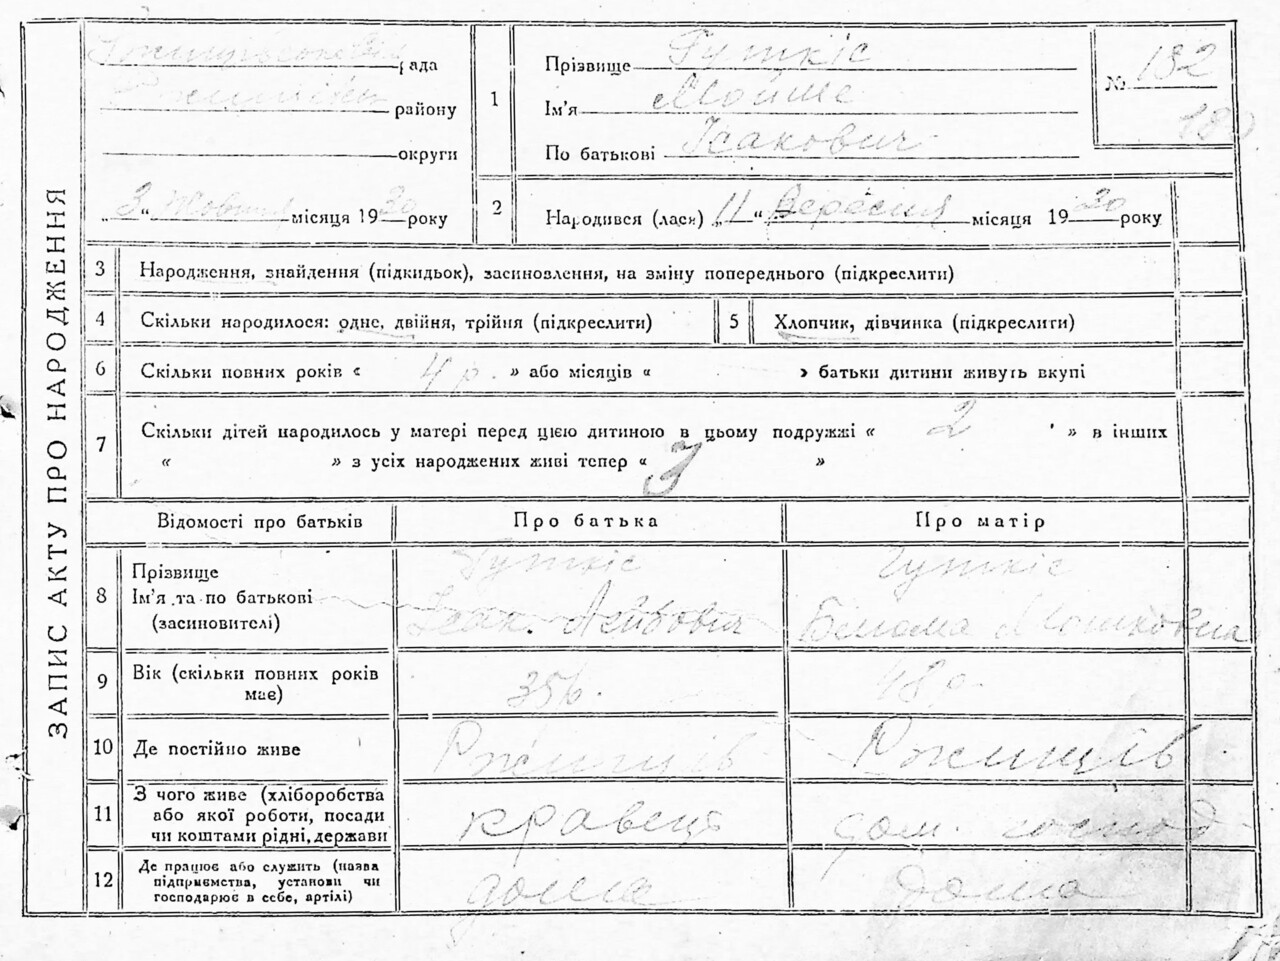 ЗАПИС АКТУ ПРО НАРОДЖЕННЯ
рада
району
округи
„ 3 “ Жовтня місяця 19 30 року
1
Прізвище Гуткіс
Ім'я Мойше
По батькові Ісакович
№ 182
180
2
Народився (лася) „ 11 “ Вересня місяця 19 30 року
3 Народження, знайдення (підкидьок), засиновлення, на зміну попереднього (підкреслити)
4 Скільки народилося: одне, двійня, трійня (підкреслити)
5 Хлопчик, дівчинка (підкреслити)
6 Скільки повних років « 4 р. » або місяців « » батьки дитини живуть вкупі
7 Скільки дітей народилось у матері перед цією дитиною в цьому подружжі « 2 » в інших
« » з усіх народжених живі тепер « 3 »
Відомості про батьків Про батька Про матір
8 Прізвище Гуткіс Гуткіс
Ім'я та по батькові Ісак Лейбович Мошковна
(засиновителі)
9 Вік (скільки повних років має)
10 Де постійно живе Ржищів Ржищів
11 З чого живе (хліборобства
або якої роботи, посади кравець дом. господ
чи коштами рідні, держави
12 Де працює або служить (назва
підприємства, установи чи дома дома
господарює в себе, артілі)